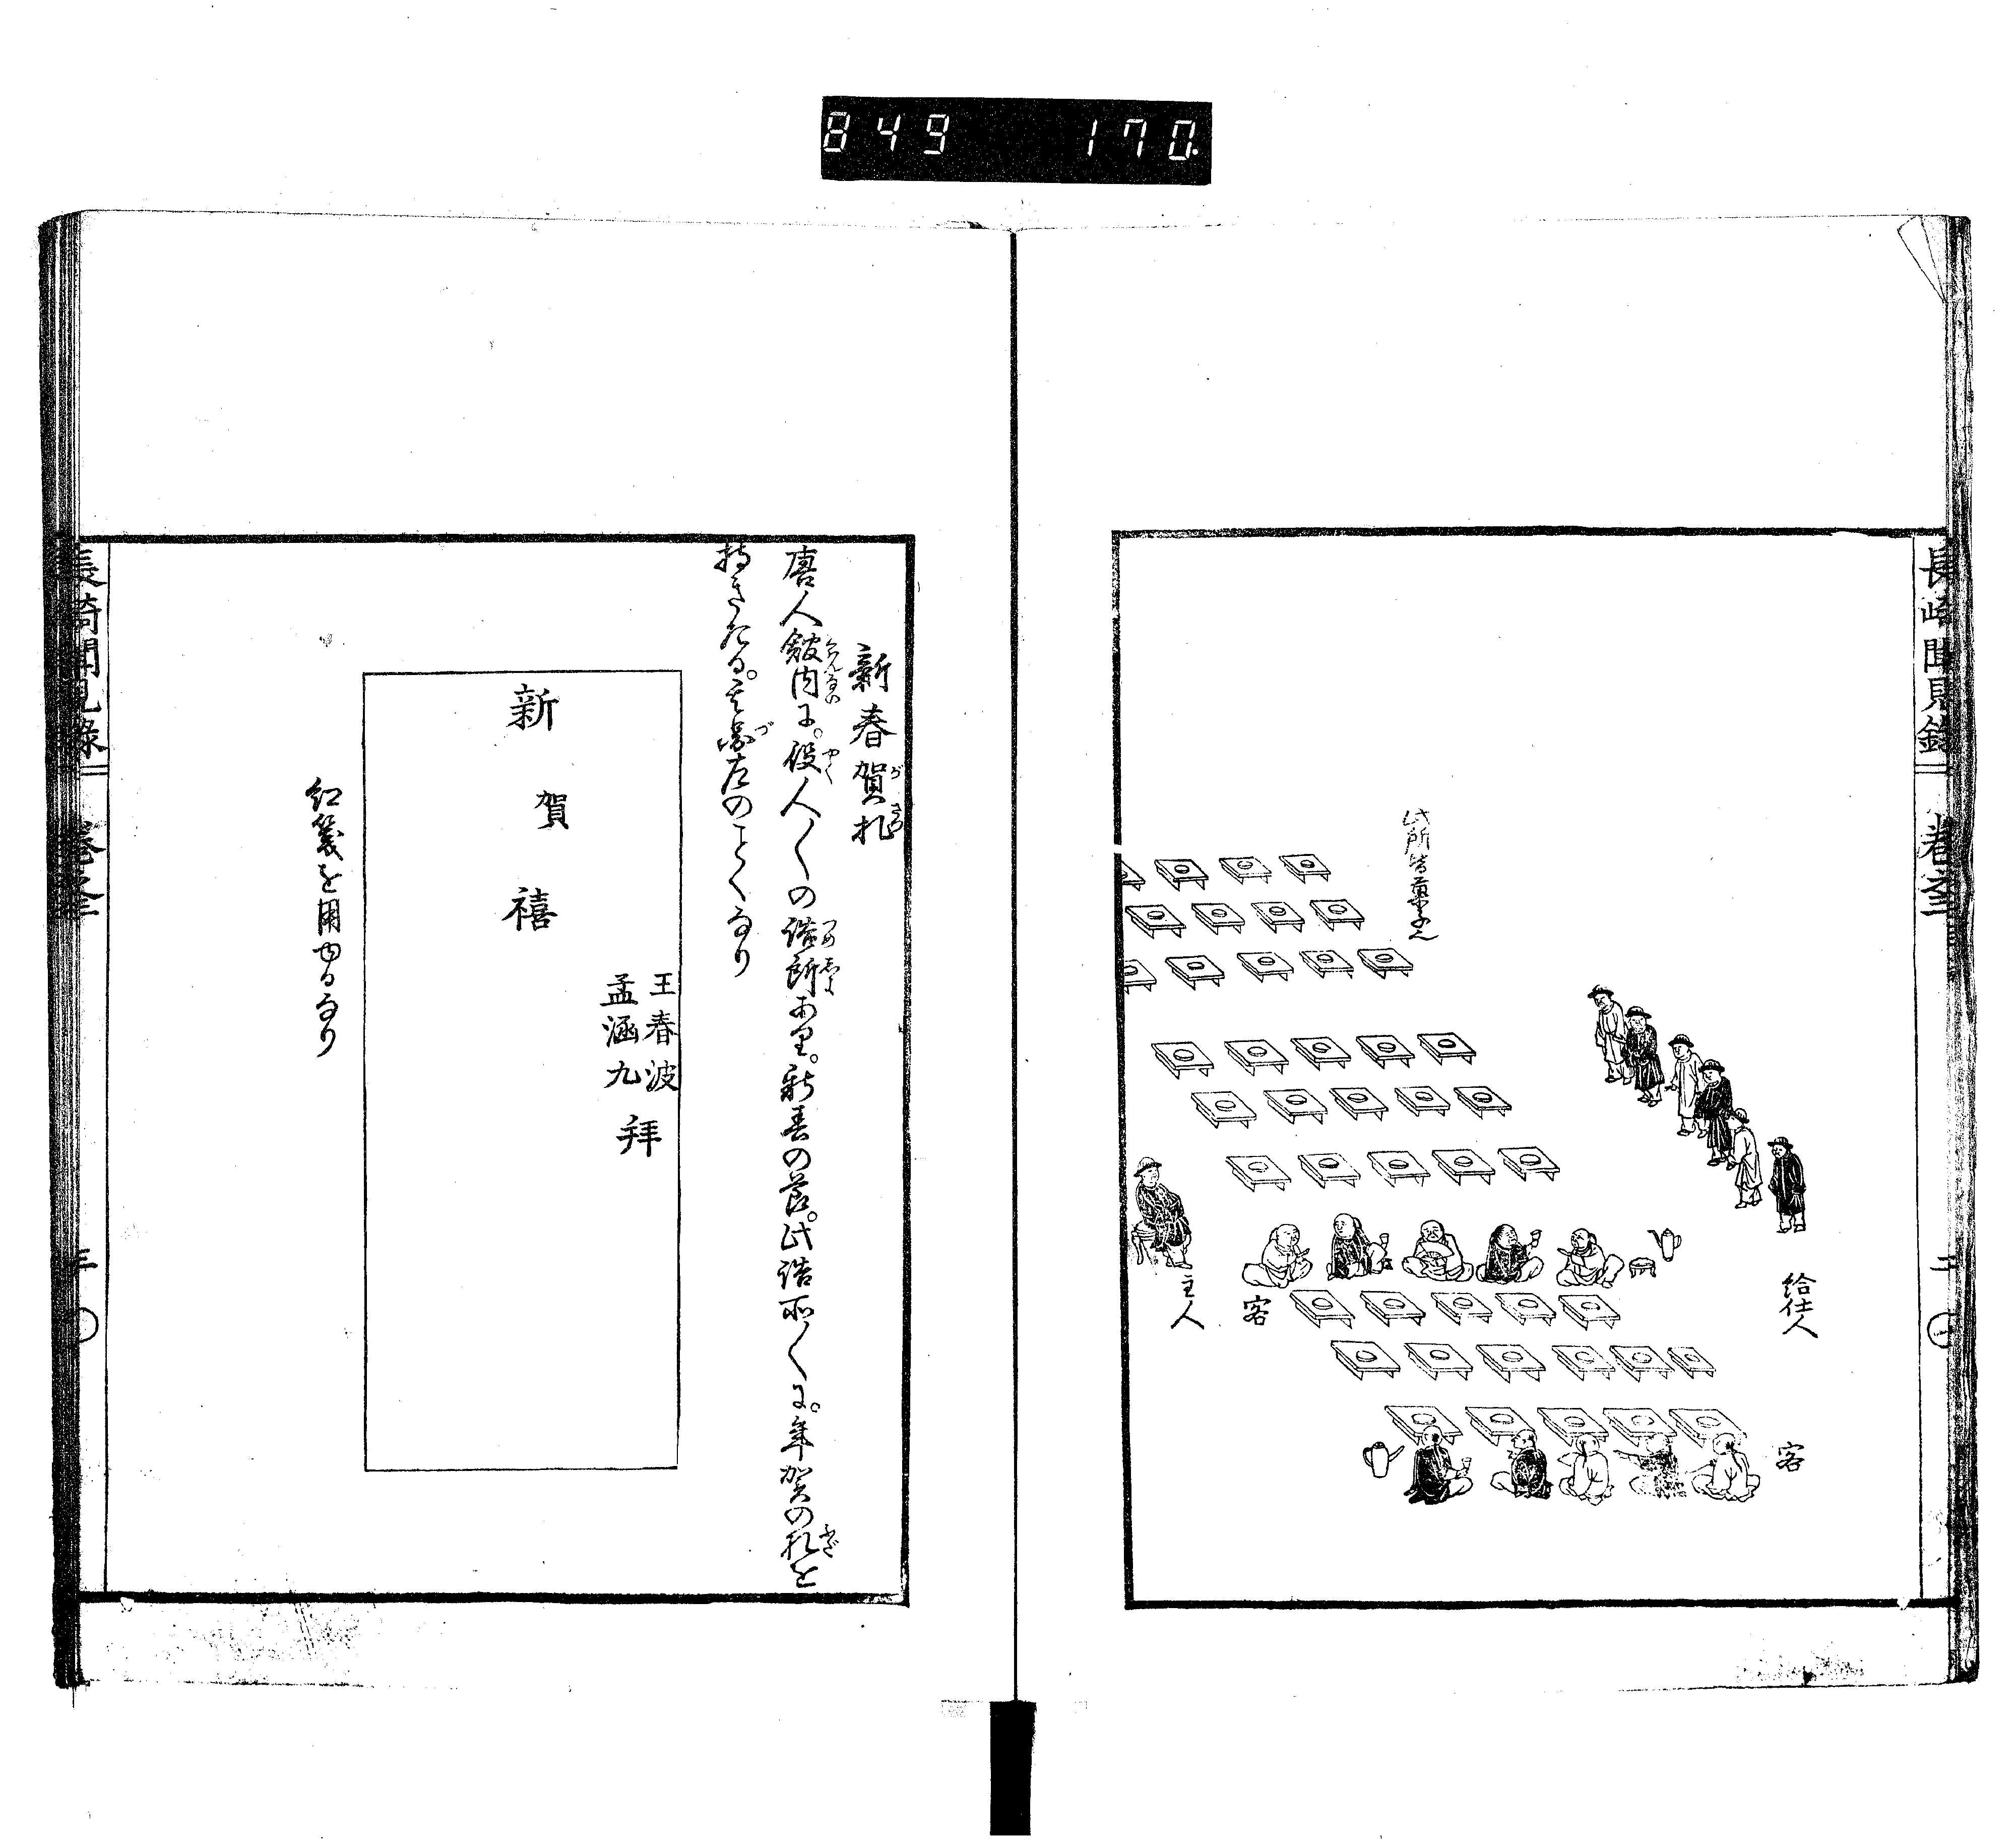 849 170
長崎聞見録 巻之二
二
此所皆菓子也
給仕人
主人
客
客
新春賀札
唐人館内に。役人〱の詰所あり。新春の節。此詰所〱に。年賀の札を
持きたる。其図左のごとくなり
王春波
孟涵九
拝
新
賀
禧
紅箋を用ゆるなり
長崎聞見録 巻之二
三